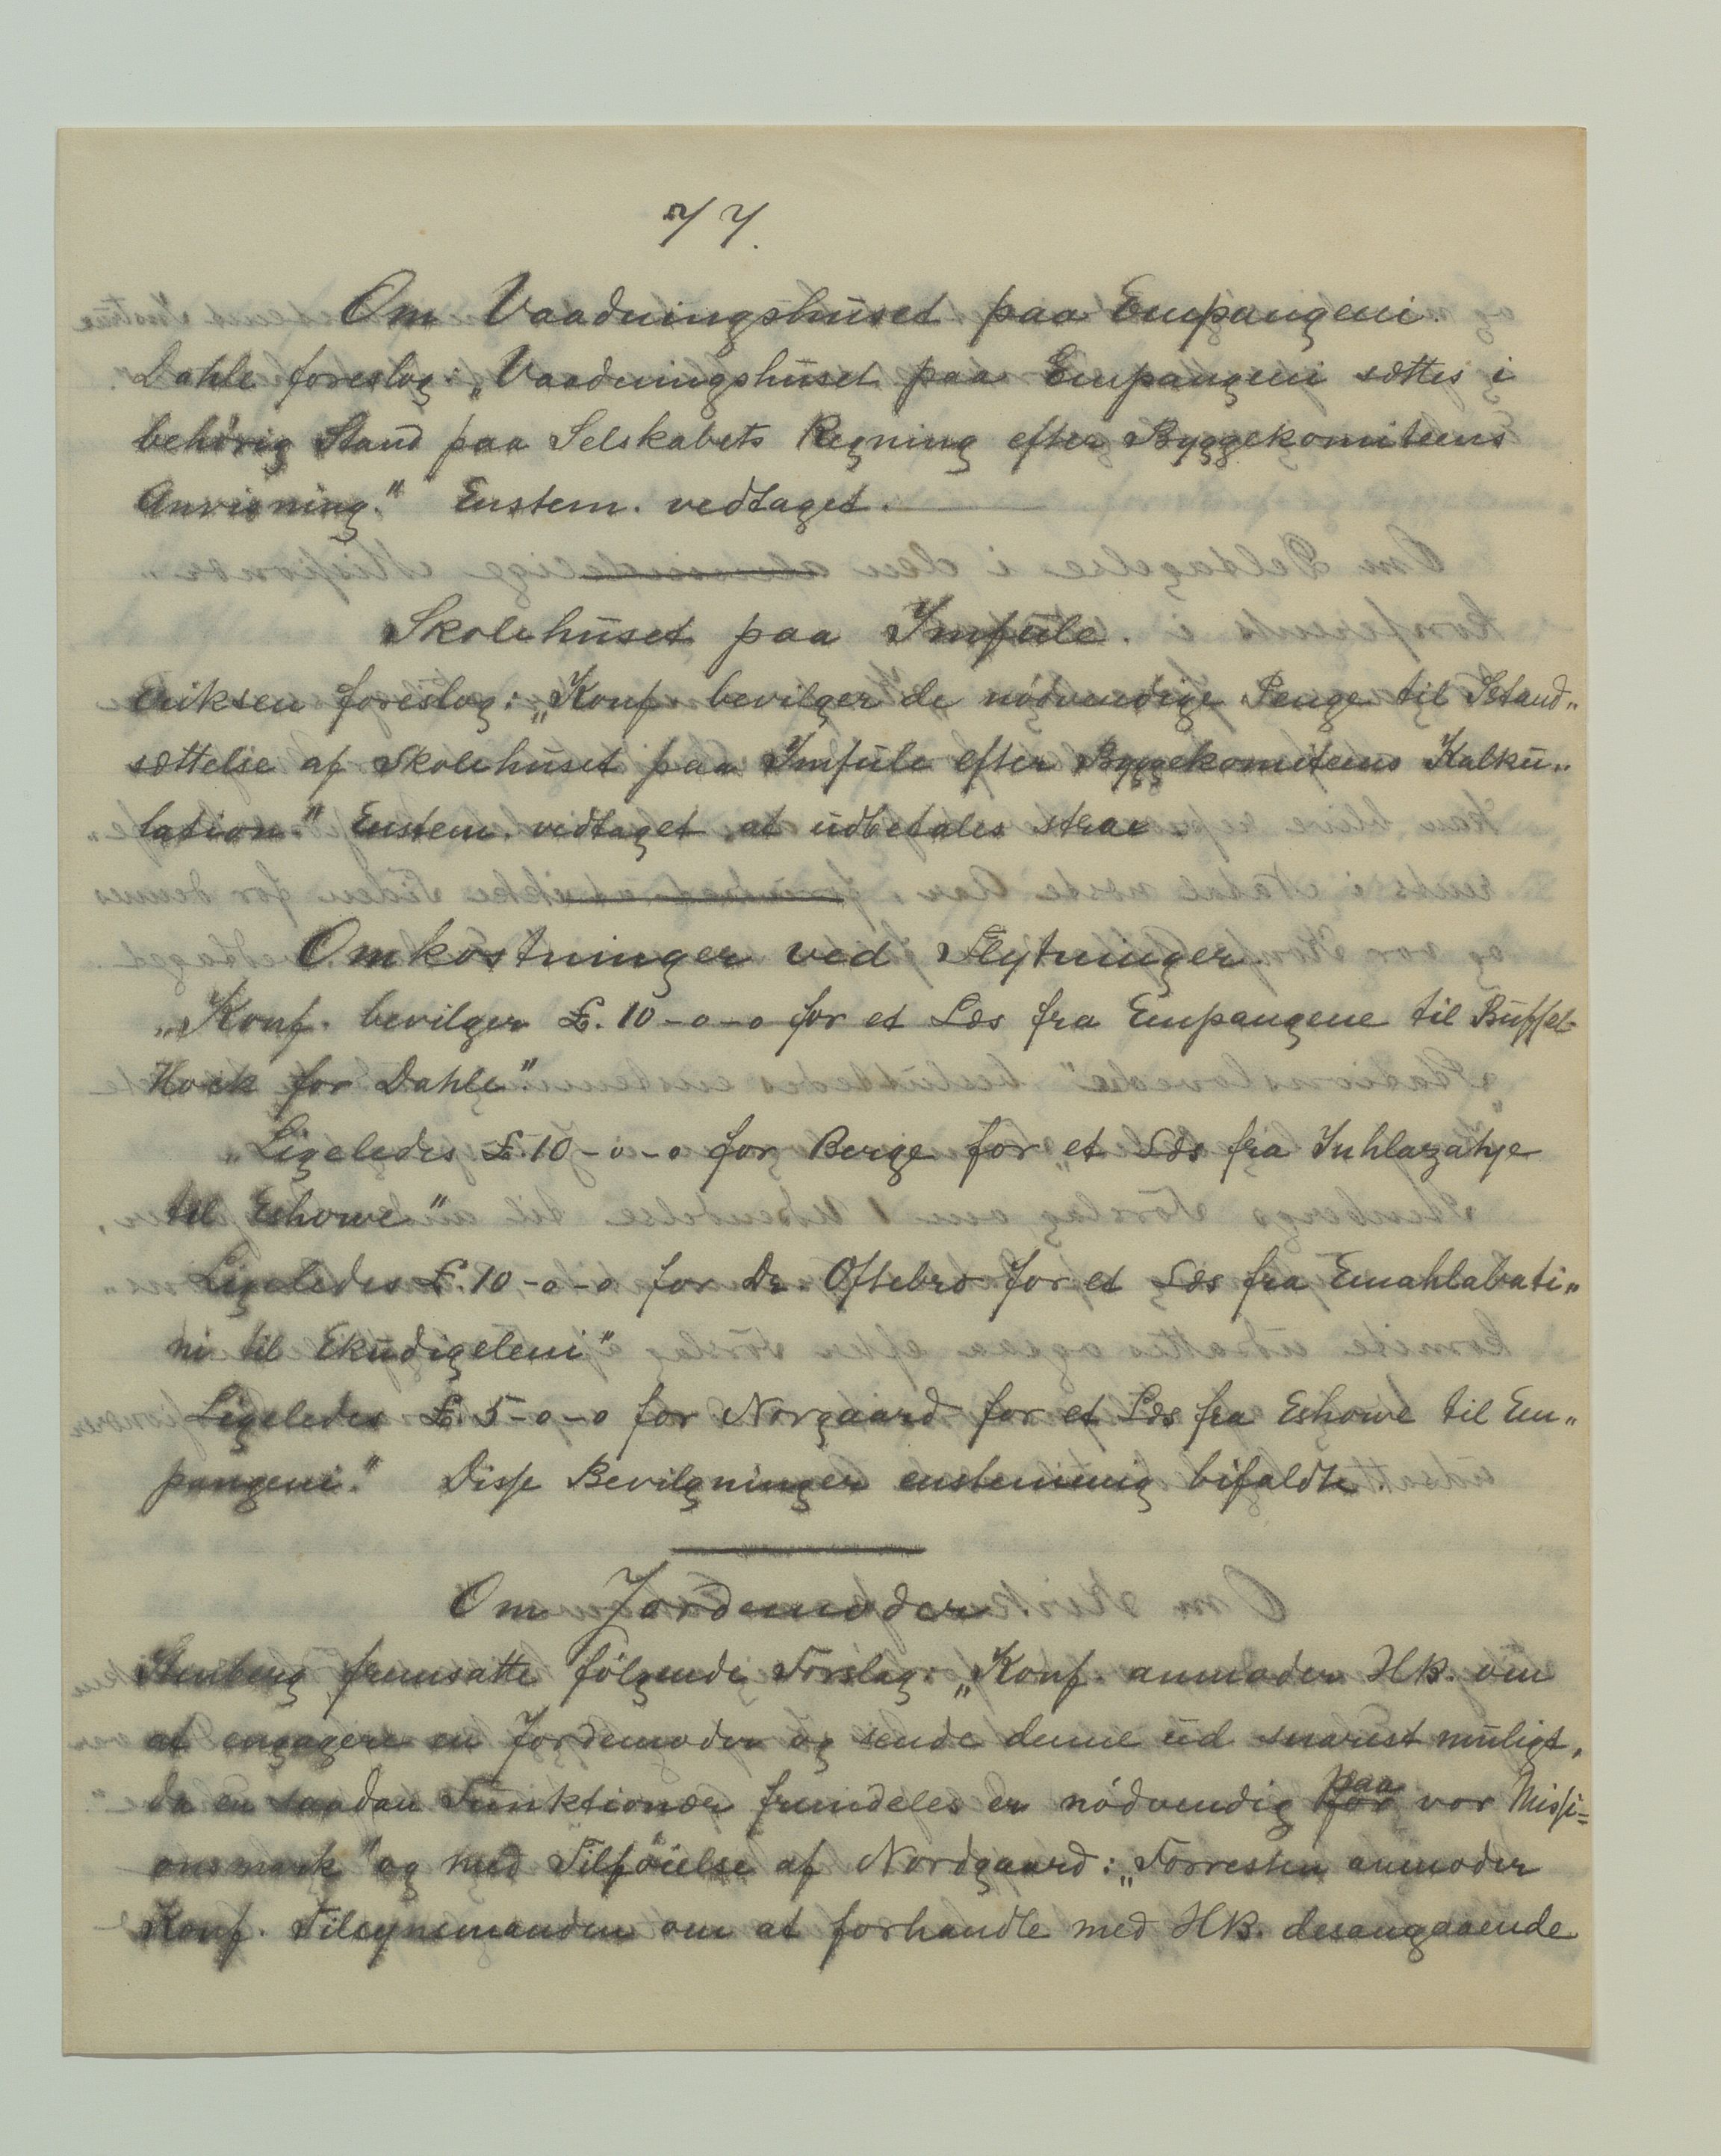 77.
Om Vaaningshuset paa Empangeni.
Dahle foreslog: „Vaaningshuset paa Empangeni sættes i
behörig Stand paa Selskabets Regning efter Byggekomiteens
Anvisning." Enstem. vedtaget.
Skolehuset paa Imfule.
Eriksen foreslog: „Konf. bevilger de nödvendige Penge til Istand„
sættelse af Skolehuset paa Imfule efter Byggekomiteens Kalku„
lation." Enstem. vedtaget at udbetales strax.
Omkostninger ved Flytninger.
„Konf. bevilger £. 10-0-0 for et Læs fra Empangene til Buffel-
Hoek for Dahle".
„Ligeledes £.10-0-0 for Berge for et Læs fra Inhlazatye
til Eshowe"
Ligeledes £.10-0-0 for Dr. Oftebro for et Læs fra Emahlabati„
ni til Ekudigeleni"
Ligeledes £.5-0-0 for Norgaard for et Læs fra Eshowe til Em„
pangeni." Disse Bevilgninger enstemmig bifaldte.
Om Jordemoder
Stenberg fremsatte fölgende Forslag: „Konf. anmoder HB. om
at engagere en Jordemoder og sende denne ud snarest muligt,
da en saadan Funktionær fremdeles er nödvendig for paa vor Missi=
onsmark" og med Tilföielse af Nordgaard: „Forresten anmoder
Konf. Tilsynsmanden om at forhandle med HB. desangaaende